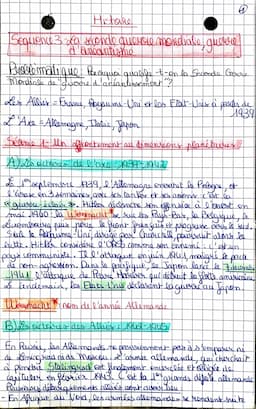 Histoire
Séquence 3 : La seconde guerre mondiale, guerre
d'anéantissement
Problématique : Pourquoi qualifie-t-on la Seconde Guerre
Mondiale de "guerre d'anéantissement" ?
Les Alliés = France, Royaume-Uni et les Etat-Unis à partir de
1939
L'Axe = Allemagne, Italie, Japon
Séance 1 : Un affrontement aux dimensions planétaires
A) Les victoires de l'axe (1939-1942)
Le 1er septembre 1939, l'Allemagne envahit la Pologne, et
l'écrase en 3 semaines, avec ses tanks et ses avions : c'est la
"guerre éclair". Hitler déclenche son offensive à l'ouest en
mai 1940. La Wehrmacht* sur les Pays-Bas, la Belgique, le
Luxembourg puis perce le front français et progresse vers le sud.
Seul le Royaume-Uni dirigé par Churchill, poursuit alors la
lutte. Hitler considère l'URSS comme son ennemi : c'est un
pays communiste. Il l'attaque en juin 1941, malgré le pacte
de non agression. Dans le pacifique, le Japon lance le 7 décembre
1941 l'attaque de Pearl Harbor, qui détruit la flotte américaine
Le lendemain, les Etats-Unis déclarent la guerre au Japon.
Wehrmacht : nom de l'armée Allemande
B) Les victoires des Alliés (1942-1945)
En Russie, les Allemands ne parviennent pas à s'emparer ni
de Leningrad ni de Moscou. L'armée allemande, qui cherchait
à prendre Stalingrad est finalement encerclée et obligée de
capituler en février 1943. C'est la 1ère grande défaite allemande
Plusieurs débarquements alliés sont alors
- En Afrique du Nord, les armées allemandes se rendent suite